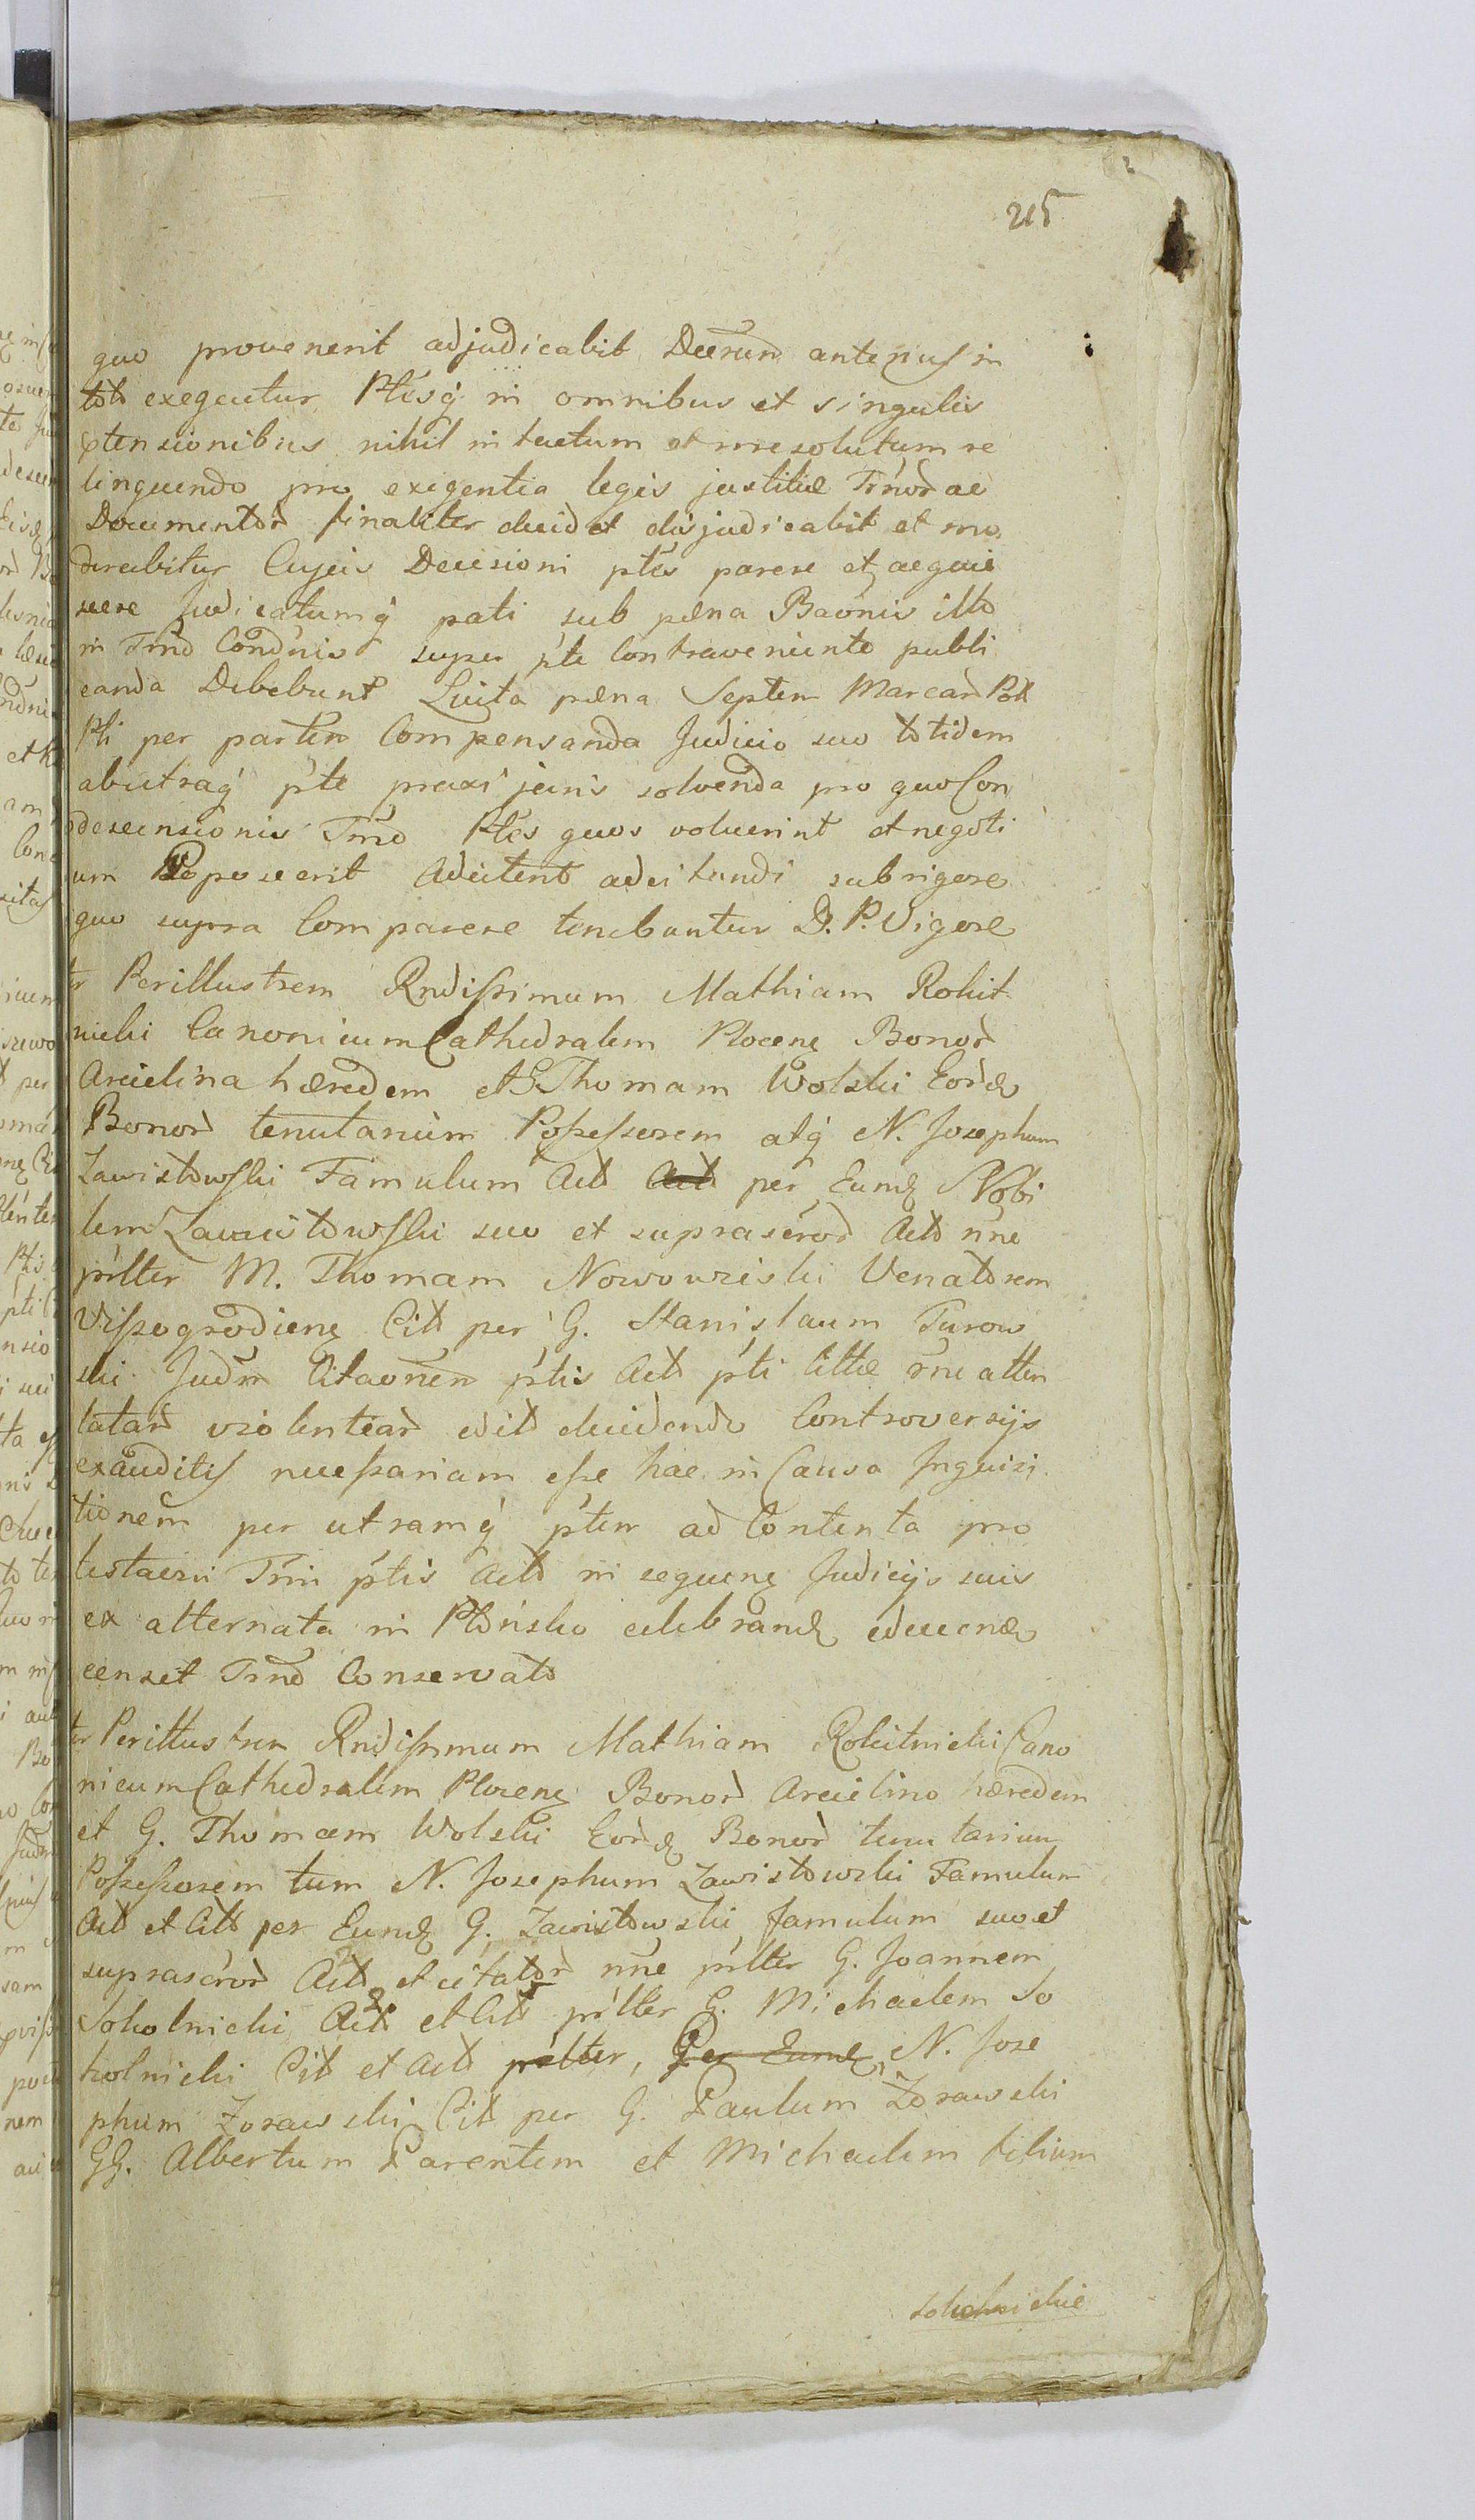 215
quo provenerit adjudicabit Decrum anterius in
toto exequetur Ptesq in omnibus et singulis
ptensionibus nihil intactum et irresolutum re
linquendo pro exigentia legis justitiæ Trnor ac
Documentor finaliter decidet disjudicabit et mo
derabitur Cujus Decisioni ptes parere et acquie
scere Judicatumq pati sub pæna Baonis illo
in Trno Condnis super pte Contraveniente publi
canda Debebunt Luita pæna Septem Marcar Pol
Pti per partem Compensanda Judicio suo totidem
abutraq pte praxi juris solvenda pro quo Con
descensionis Trno Ptes quos voluerint et negoti
um Poposcerit Adcitent adcitandi sub rigore
quo supra Comparere tenebuntur D. P. Vigore
tr Perillustrem Rndissimum Mathiam Rokit
nicki Canonicum Cathedralem Plocens Bonor
Arcielina hæredem et G Thomam Wolski Eord
Bonor tenutarium Possessorem atq N. Josephum
Zawistowski Famulum Act Act per Eund Nobi
lem Zawistowski suo et suprascror Act nne
pritter M. Thomam Nowowieiski Venatorem
Vissogrodiens Citt per G. Stanislaum Turow
ski Judm Citaonem ptis Act pti Citto rne atten
tatar violentiar edit decidendo Controversijs
exauditis necessariam esse hac in Causa Inquisi
tionem per utramq ptem ad Contenta pro
testaoni Trni ptis Act in sequens Judicijs suis
ex alternata in Płońsko celebrand educend
censet Trno Conservato
tr Perillustrem Rndissimum Mathiam Rokitnicki Cano
nicum Cathedralem Plocens Bonor Arcielino hæredem
et G. Thomam Wolski Eord Bonor tenutarium
Possessorem tum N. Josephum Zawistowski Famulum
Act et Citt per Eund G. Zawistowski famulum suo et
suprascror Act et citator nne pritter G. Joannem
Sokolnicki Act et Citt pritter G. Michaelem So
kolnicki Cit et Act pritter, Per Eund, N. Jose
phum Zorawski Cit per G. Paulum Zorawski
GG. Albertum Parentem et Michaelem filium